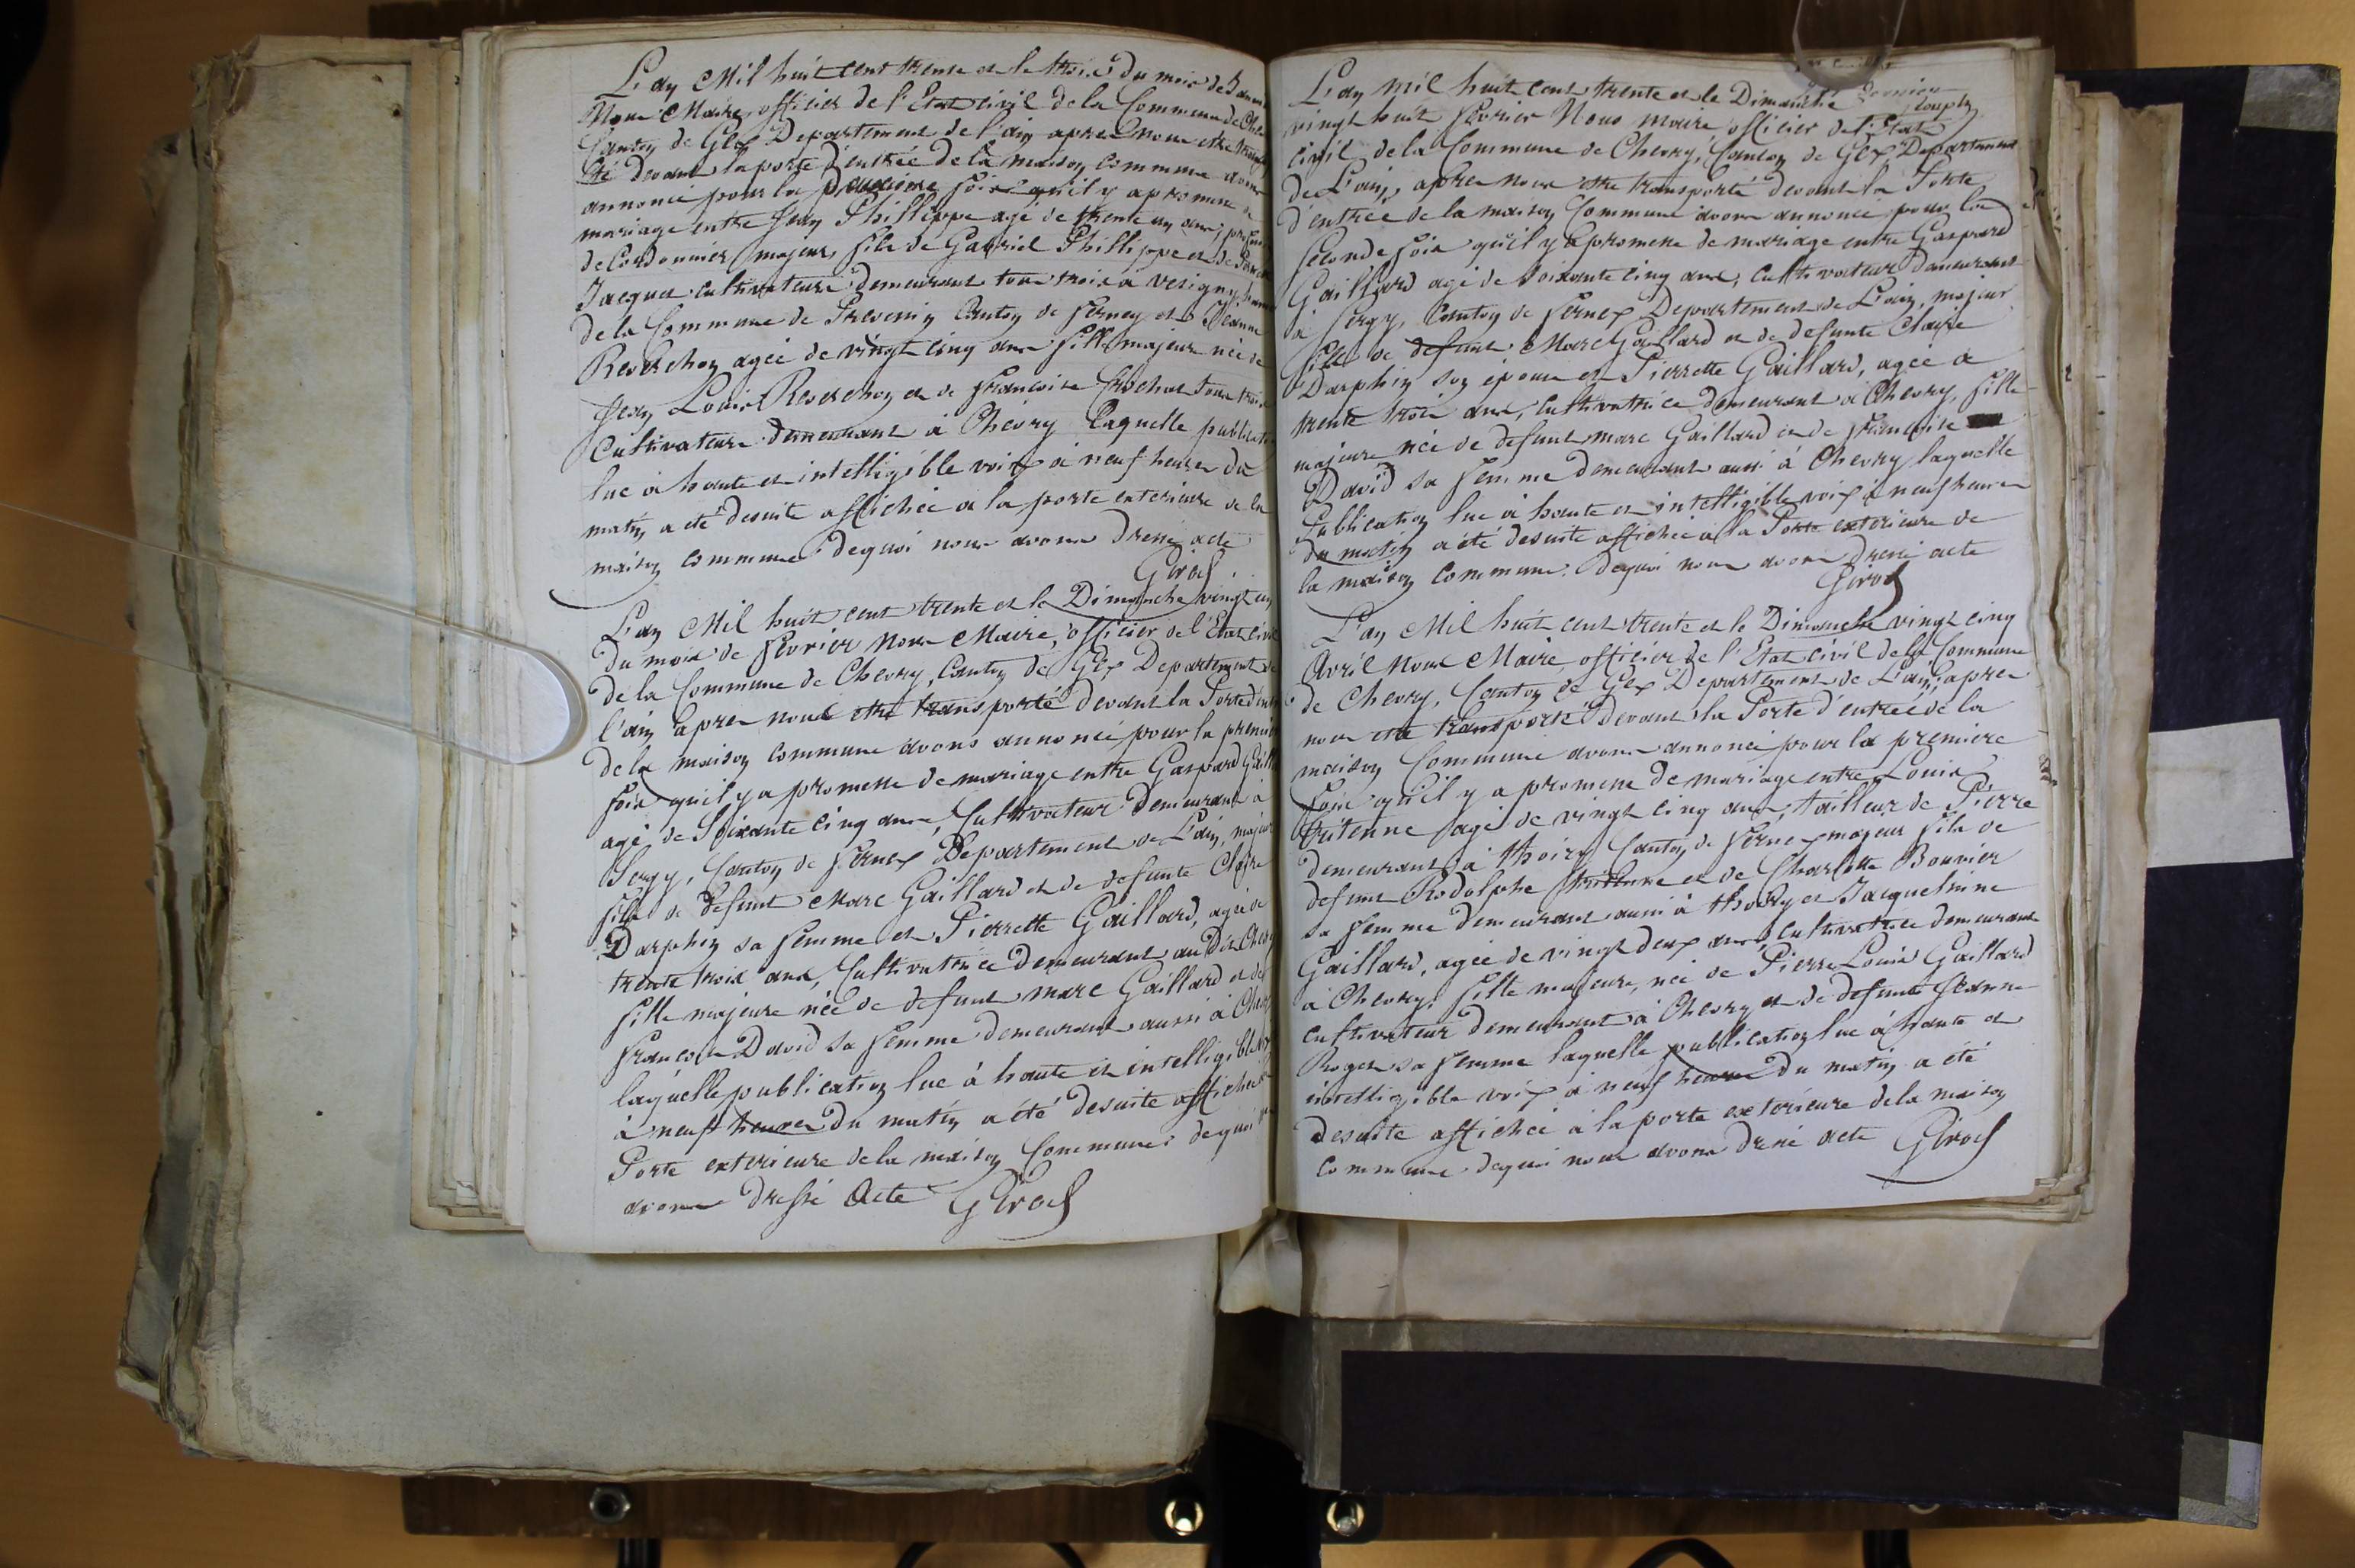 L'an Mil huit cent trente et le trois du mois de
Nous Maire, officier de l'Etat civil de la Commune de
Canton de Gex Departement de l'ain apres nous etre
été devant la porte d'entrée de la maison commune avons
annoncé pour la fois qu'il y a promesse de
mariage entre Jean Phillippe agé de trente un ans,
de Cordonnier majeur, fils de Gabriel Phillippe et de
Jacquet cultivateurs demeurant tous trois à vesigny
de la Commune de Prevenin Canton de ferney et Jeanne
Reverchon agée de vingt cinq ans fille majeur née de
Jean Louis Reverchon et de francoise Crochat tous trois
Cultivateurs demeurant à Chevry Laquelle
lue à haute et intelligible voix à neuf heures du
matin a été desuite affichée a la porte exterieure de la
maison commune dequoi nous avons dressé acte
Girod
L'an Mil huit cent trente et le Dimanche vingt un
du mois de fevrier nous Maire, officier de l'Etat civil
de la Commune de Chevry, Canton de Gex Departement de
l'ain apres nous etre transporté devant la Porte
de la maison commune avons annoncé pour la
fois qu'il y a promesse de mariage entre Gaspard
agé de Soixante cinq ans, Cultivateur demeurant à
Sergy, Canton de fernex Departement de L'ain, majeur
fils de defunt Marc Gaillard et de defunte Claire
Darphin sa femme et Pierrette Gaillard, agée de
trente trois ans, Cultivatrice demeurant au Dit
fille majeure née de defunt marc Gaillard et de
francoise David sa femme demeurant aussi à
laquelle publication lue à haute et intelligible
à neuf heures du matin a été desuite affichée
Porte exterieure de la maison Commune dequoi
avons dressé Acte Girod
L'an mil huit cent trente et le Dimanche
vingt huit fevrier Nous maire officier de l'Etat
civil de la Commune de Chevry, Canton de Gex, Departement
de L'ain, apres nous etre transporté devant la Porte
d'entrée de la maison Commune avons annoncé pour la
seconde fois qu'il y a promesse de mariage entre Gaspard
Gaillard agé de Soixante cinq ans, cultivateur demeurant
à Sergy, Canton de fernex Departement de L'ain, majeur
fils de defunt Marc Gaillard et de defunte Claire
Darphin son epouse et Pierrette Gaillard, agée a
trente trois ans, cultivatrice demeurant à Chevry, fille
majeure née de defunt marc Gaillard et de francoise
David sa femme demeurant aussi à Chevry laquelle
Publication lue à haute et intelligible voix à neuf heures
du matin a été desuite affichée à la Porte exterieure de
la maison commune. Dequoi nous avons dressé acte
Girod
L'an Mil huit cent trente et le Dimanche vingt cinq
Avril Nous Maire, officier de l'Etat civil de la Commune
de Chevry, Canton de Gex Departement de L'ain, apres
nous etre transporté devant la Porte d'entrée de la
maison Commune avons annoncé pour la premiere
fois qu'il y a promesse de mariage entre Louis
agé de vingt cinq ans, tailleur de Pierre
demeurant à thoiry Canton de fernex majeur fils de
defunt Rodolphe et de Charlotte Bouvier
sa femme demeurant aussi à thoiry et Jacquelmine
Gaillard, agée de vingt deux ans cultivatrice demeurant
à Chevry, fille majeure, née de Pierre Louis Gaillard
cultivateur demeurant à Chevry et de defunte Jeanne
Roget sa femme laquelle publication lue à haute et
intelligible voix à neuf heures du matin a été
desuite affichée à la porte exterieure de la maison
commune dequoi nous avons dressé acte Girod